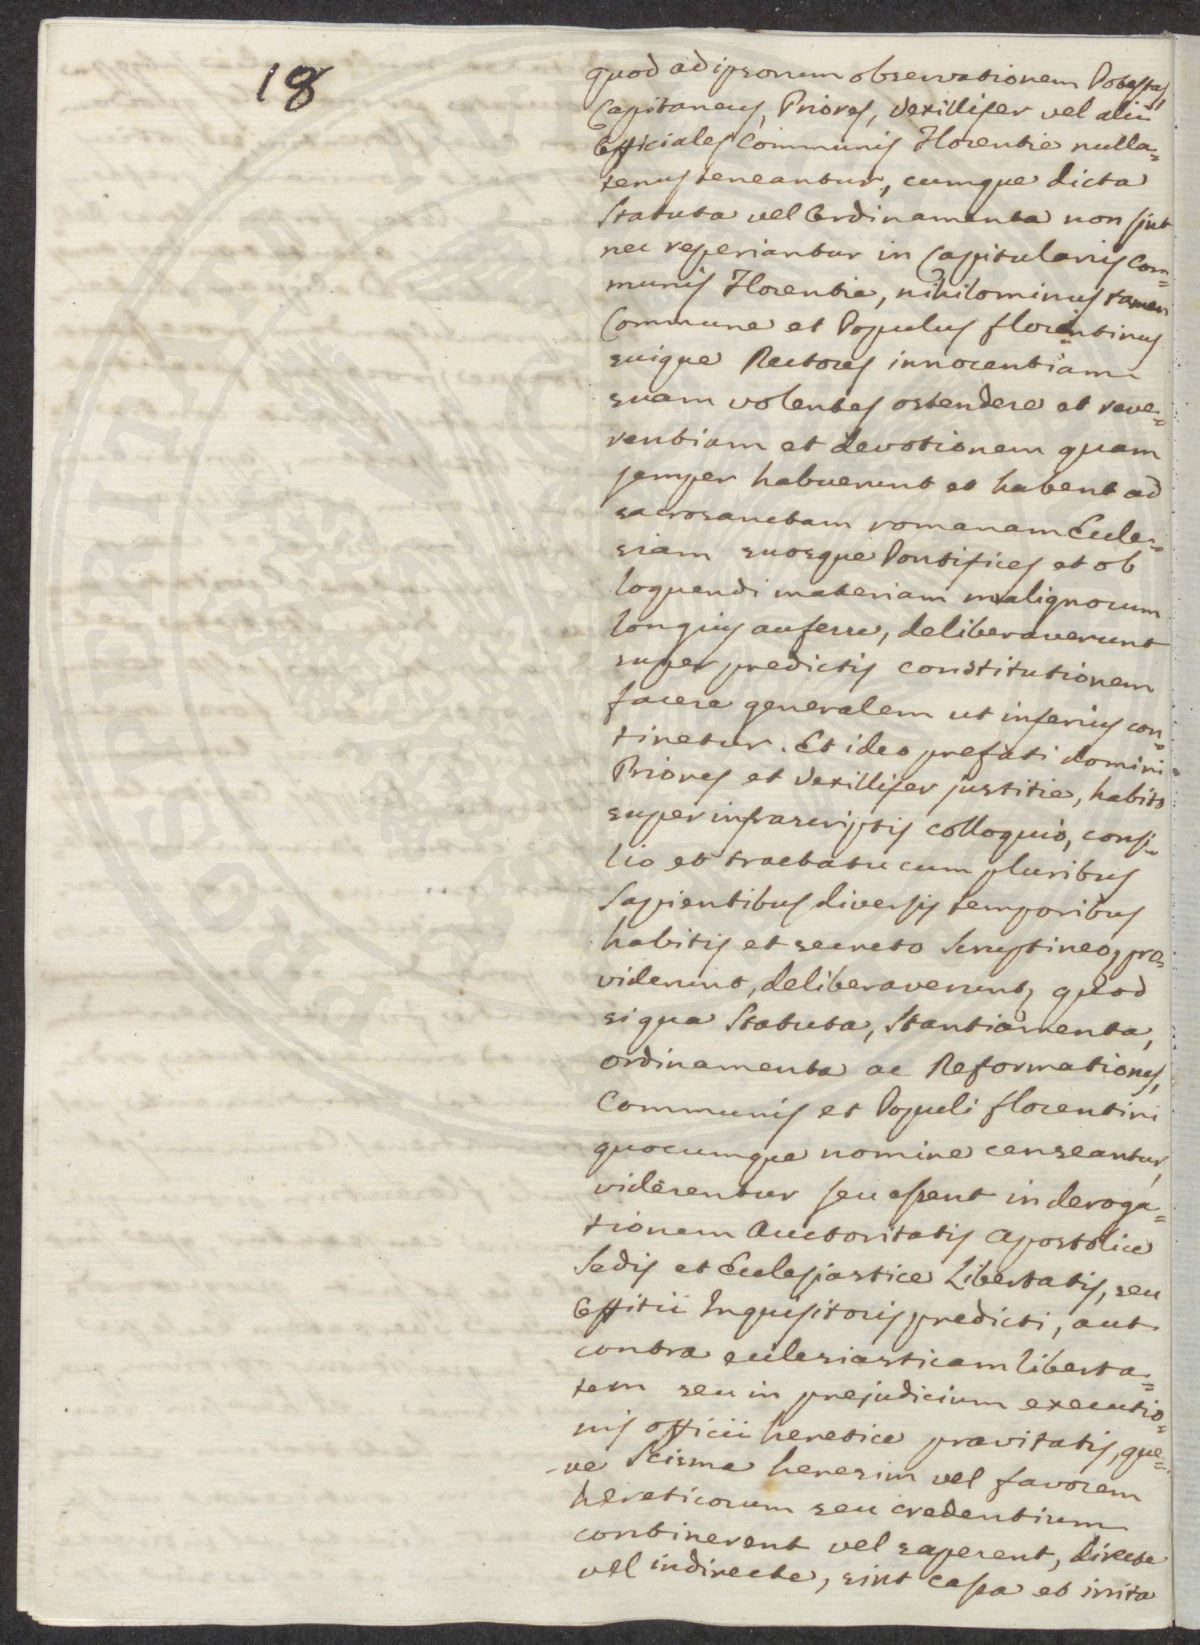 18
quod ad ipsorum observationem Potestas,
Capitaneus, Priores, Vexillifer vel alii
Officiales Communis Florentie nulla=
tenus teneantur, cumque dicta
Statuta vel Ordinamenta non sint
nec reperiantur in Capitulariis Com=
munis Florentie, nihilominus tamen
Commune et Populus florentinus
suique Rectores innocentiam
suam volentes ostendere et reve=
rentiam et devotionem quam
semper habuerunt et habent ad
sacrosanctam romanam Eccle=
siam suosque Pontifices et ob
loquendi materiam malignorum
longius auferre, deliberaverunt
super predictis constitutionem
facere generalem ut inferius con=
tinetur. Et ideo prefati domini
Priores et Vexillifer justitie, habito
super infrascriptis colloquio, consi=
lio et tractatu cum pluribus
Sapientibus diversis temporibus
habitis et secreto Scruptineo, pro=
viderunt, deliberaverunt, quod
siqua Statuta, Stantiamenta,
ordinamenta ac Reformationes,
Communis et Populi florentini
quocumque nomine censeantur,
viderentur seu essent in deroga=
tionem Auctoritatis Apostolice
Sedis et Ecclesiastice Libertatis, seu
Offitii Inquisitoris predicti, aut
contra ecclesiasticam liberta=
tem seu in prejudicium executio=
nis officii heretice pravitatis, que=
ve Scisma heresim vel favorem
hereticorum seu credentium
continerent vel saperent, directe
vel indirecte, sint cassa et irrita